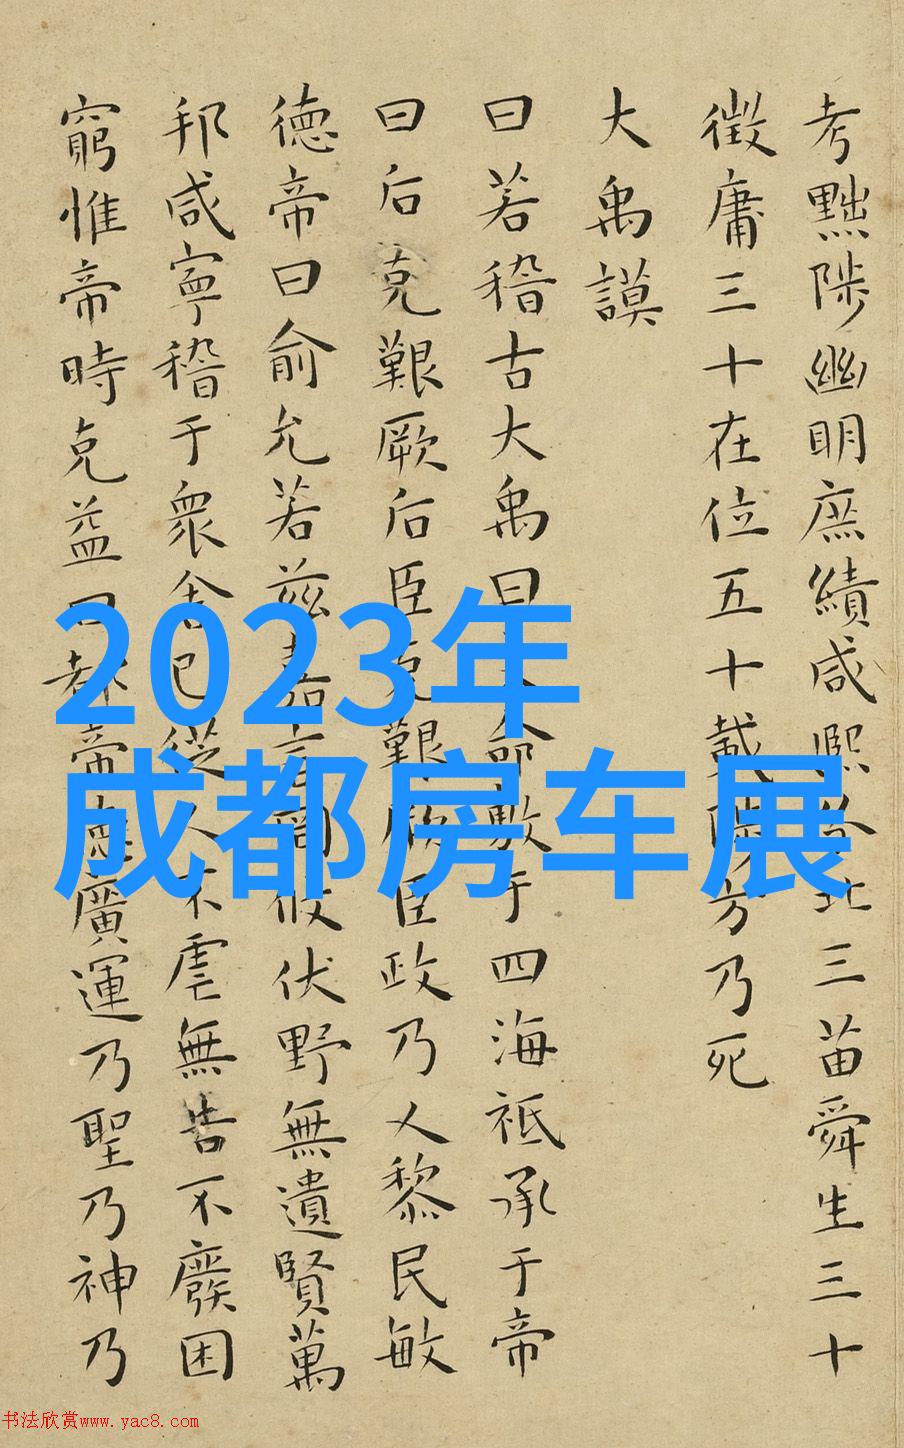 2023年
成都房车展
考黜陟幽明庶績咸熙分北三苗舜生三十
徵庸三十在位五十載陟方乃死
大禹謨
曰若稽古大禹曰命敷于四海祗承于帝
曰后克艱厥后臣克艱厥臣政乃乂黎民敏
德帝曰俞允若茲嘉言罔攸伏野無遺賢萬
邦咸寧稽于衆舍己從人不虐無告不廢困
窮惟帝時克益曰都帝德廣運乃聖乃神乃
书法欣赏www.yac8.com